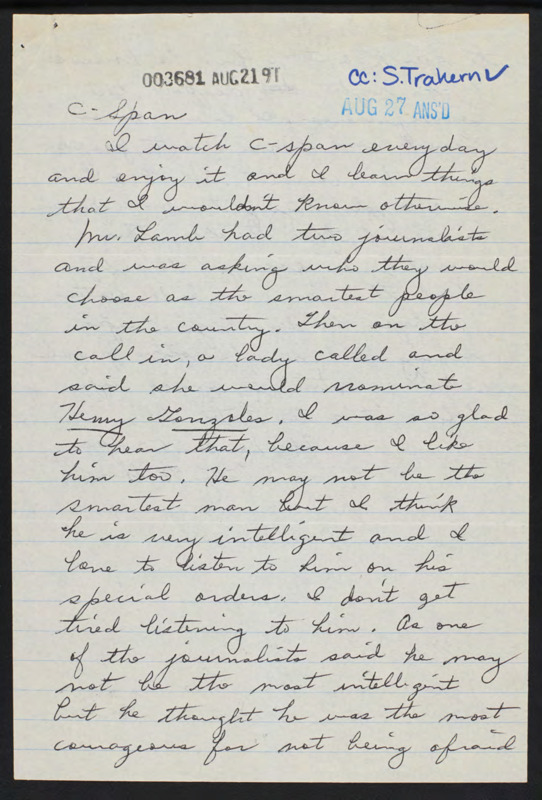 003681 AUG 21 91
cc: S. Trahern ✓
AUG 27 ANS'D
C-Span
I watch C-span every day
and enjoy it and I learn things
that I wouldn't know otherwise.
Mr. Lamb had two journalists
and was asking who they would
choose as the smartest people
in the country. Then on the
call in, a lady called and
said she would nominate
Henry Gonzales. I was so glad
to hear that, because I like
him too. He may not be the
smartest man but I think
he is very intelligent and I
love to listen to him on his
special orders. I don't get
tired listening to him. As one
of the journalists said he may
not be the most intelligent
but he thought he was the most
courageous for not being afraid